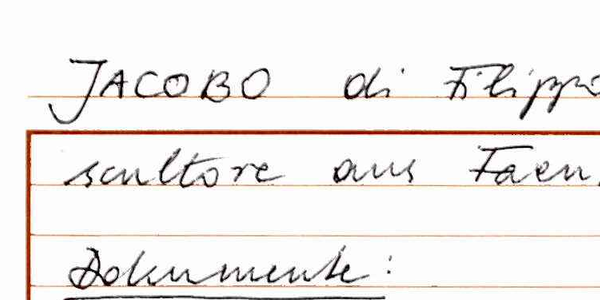 JACOBO di Filippo
scultore aus Faen
Dokumente: